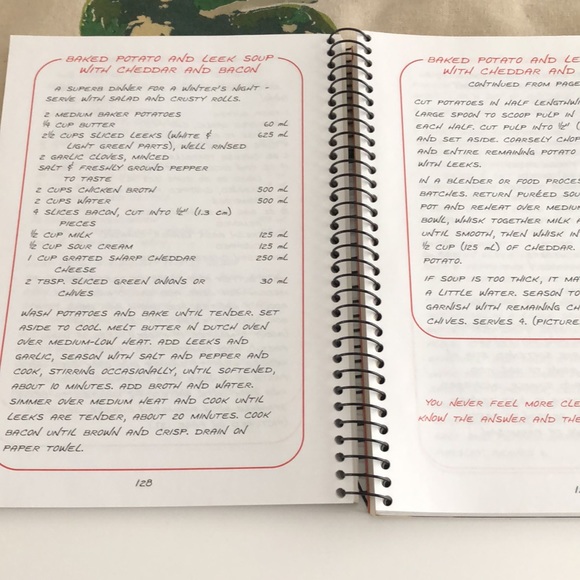 BAKED POTATO AND LEEK SOUP
WITH CHEDDAR AND BACON
A SUPERB DINNER FOR A WINTER'S NIGHT -
SERVE WITH SALAD AND CRUSTY ROLLS.
2 MEDIUM BAKER POTATOES
¼ CUP BUTTER 60 mL
2½ CUPS SLICED LEEKS (WHITE & 625 mL
LIGHT GREEN PARTS), WELL RINSED
2 GARLIC CLOVES, MINCED
SALT & FRESHLY GROUND PEPPER
TO TASTE
2 CUPS CHICKEN BROTH 500 mL
2 CUPS WATER 500 mL
4 SLICES BACON, CUT INTO ½" (1.3 cm)
PIECES
½ CUP MILK 125 mL
½ CUP SOUR CREAM 125 mL
1 CUP GRATED SHARP CHEDDAR 250 mL
CHEESE
2 TBSP. SLICED GREEN ONIONS OR 30 mL
CHIVES
WASH POTATOES AND BAKE UNTIL TENDER. SET
ASIDE TO COOL. MELT BUTTER IN DUTCH OVEN
OVER MEDIUM-LOW HEAT. ADD LEEKS AND
GARLIC, SEASON WITH SALT AND PEPPER AND
COOK, STIRRING OCCASIONALLY, UNTIL SOFTENED,
ABOUT 10 MINUTES. ADD BROTH AND WATER.
SIMMER OVER MEDIUM HEAT AND COOK UNTIL
LEEKS ARE TENDER, ABOUT 20 MINUTES. COOK
BACON UNTIL BROWN AND CRISP. DRAIN ON
PAPER TOWEL.
128
BAKED POTATO AND LE
WITH CHEDDAR AND
CONTINUED FROM PAGE
CUT POTATOES IN HALF LENGTHW
LARGE SPOON TO SCOOP PULP IN
EACH HALF. CUT PULP INTO ½" (
AND SET ASIDE. COARSELY CHOP
AND ENTIRE REMAINING POTATO
WITH LEEKS.
IN A BLENDER OR FOOD PROCES
BATCHES. RETURN PURÉED SOU
POT AND REHEAT OVER MEDIUM
BOWL, WHISK TOGETHER MILK
UNTIL SMOOTH, THEN WHISK IN
½ CUP (125 mL) OF CHEDDAR.
POTATO.
IF SOUP IS TOO THICK, IT MA
A LITTLE WATER. SEASON TO
GARNISH WITH REMAINING CH
CHIVES. SERVES 4. (PICTURE
YOU NEVER FEEL MORE CLE
KNOW THE ANSWER AND THE